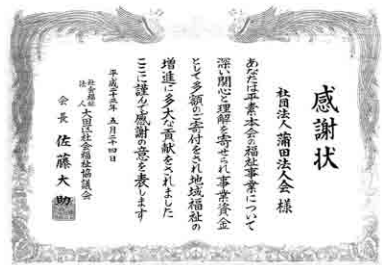 感謝状
社団法人 蒲田法人会 様
あなたは平素本会の福祉事業について
深い関心と理解を寄せられ事業資金
として多額のご寄付をされ地域福祉の
増進に多大な貢献をされました
ここに謹んで感謝の意を表します
平成二十三年 五月二十四日
社会福祉法人 大田区社会福祉協議会
会長 佐藤大助